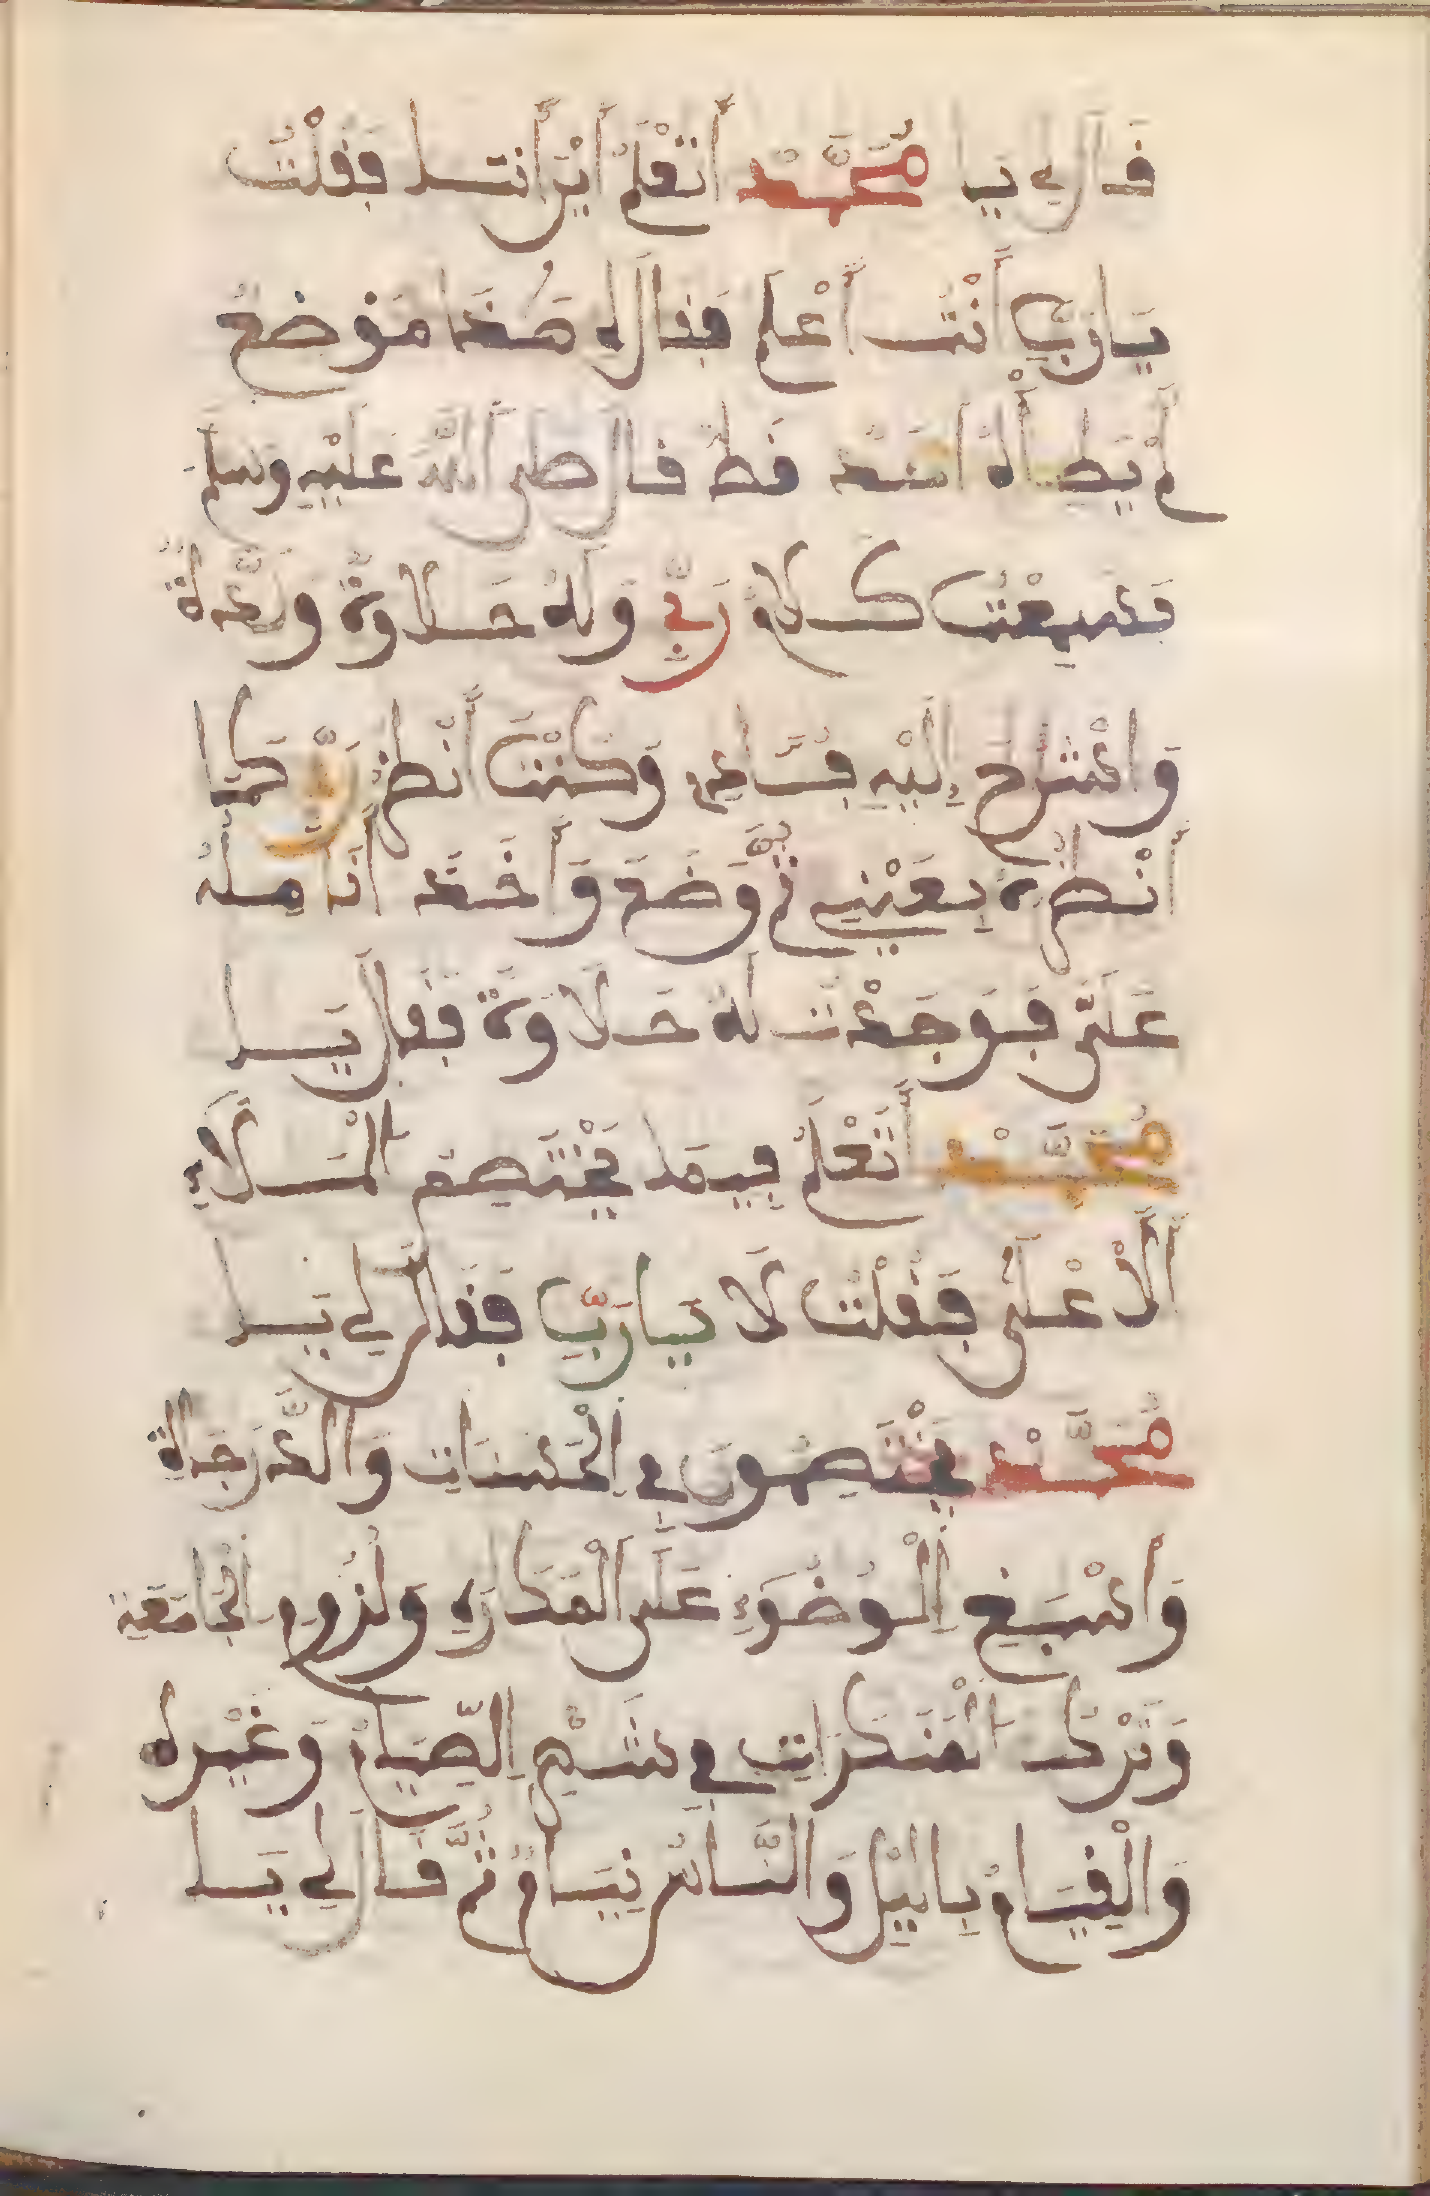 قَالَ لِي يَا مُحَمَّدْ أَتَعْلَمُ أَيْنَ أَنْتَ فَقُلْتُ
يَارَبِّ أَنْتَ أَعْلَم فَقَالَ لِي هٰذَا مَوْضِعٌ
لَمْ يَطَأْهُ أَحَدٌ قَطُّ قَالَ صلى اللّٰه عَلَيْهِ وَسَلم
فَسَمِعْتُ كَلَامَ رَبِّي وَلَهُ حَلَاوَةٌ وَلَذَّةٌ
وَانْشَرَحَ إِلَيْهِ فُؤَادِي وَكُنْتُ أَنْظُرُ رَبِّي كَمَا
أَنْظُرُهُ بِعَيْنِي ثُمَّ وَضَعَ وَاحَدَ أَنَامِلَهُ
عَلَيَّ فَوَجَدْتُ لَهُ حَلَاوَةً فَقَالَ يَا
مُحَمَّدْ أَتَعْلَمُ فِيمَا يَخْتَصِمُ الْمَلَاءِ
الْأَعْلَى فَقُلْتُ لَا يَارَبِّ فَقَالَ لِي يَا
مُحَمَّدْ يَخْتَصِمُونَ فِي الْحَسَنَاتِ وَالدَّرَجَاةِ
وَاسْبَغِ الْوُضُوءِ عَلَى الْمَكَارِهِ وَلُزُومِ الْجَامَعَةِ
وَتَرْكِ الْمُنْكَرَاتِ فِي شَهْرِ الصِّيَامِ وَغَيْرِهِ
وَالْقِيَامُ بِالَيْلِ وَالنَّاسُ نِيَامٌ ثُمَّ قَالَ لِي يَا